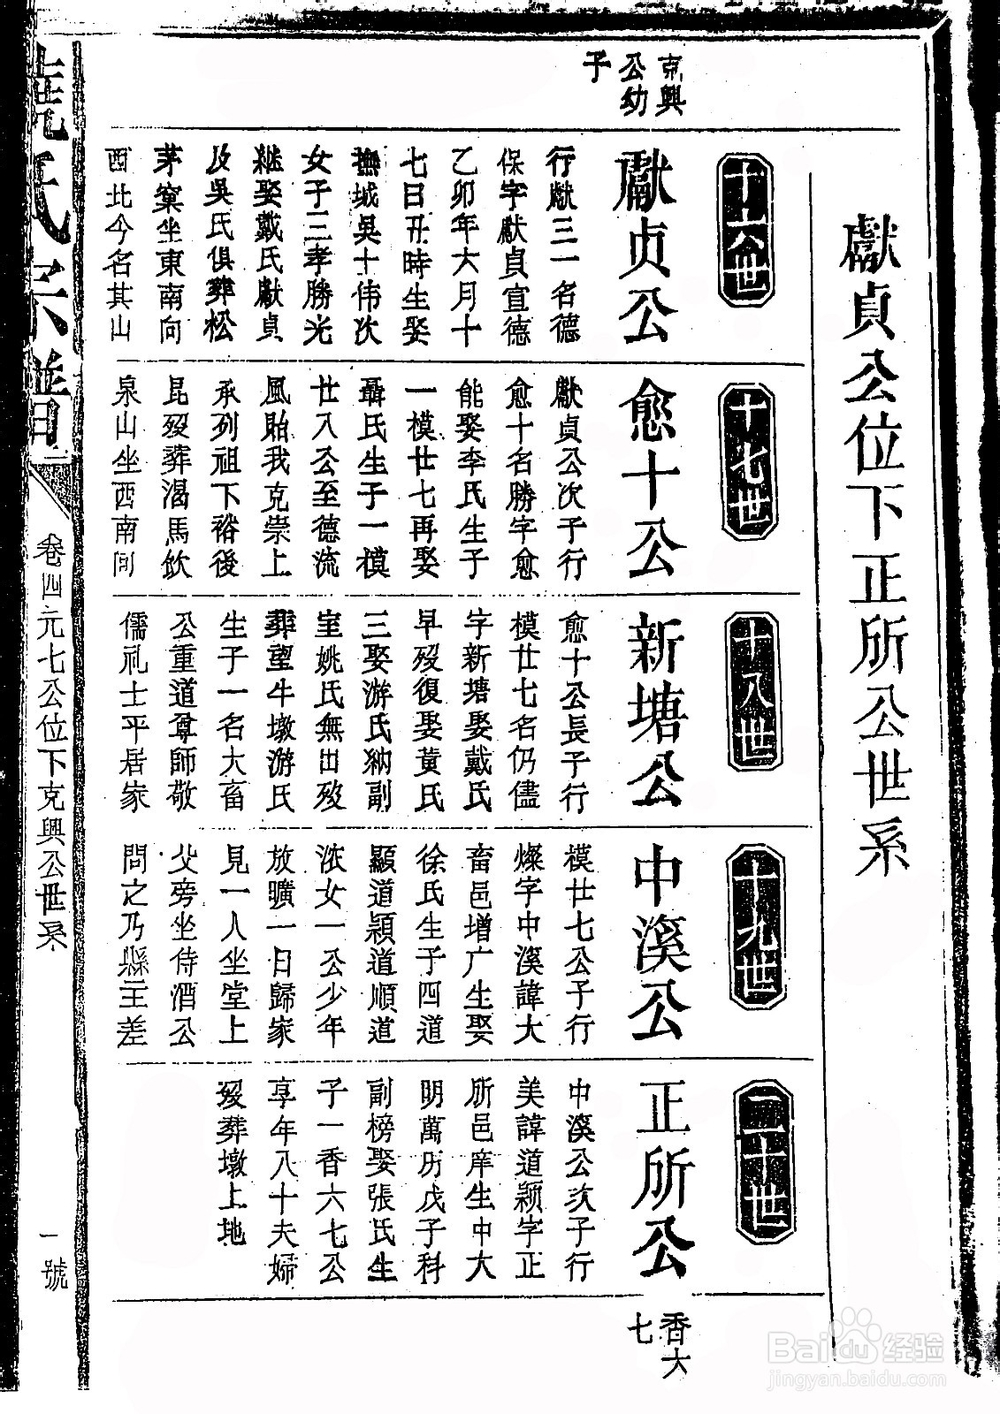 獻貞公位下正所公世系
克興
公幼
子
十六世
獻贞公
行獻三一名德
保字獻貞宣德
乙卯年六月十
七日丑時生娶
撫城吳十伟次
女子三孝勝光
継娶戴氏獻貞
及吳氏俱葬松
茅窠坐東南向
西北今名其山
十七世
愈十公
獻貞公次子行
愈十名勝字愈
能娶李氏生子
一模廿七再娶
聶氏生子一模
廿八公至德流
風貽我克崇上
承列祖下裕後
昆殁葬渴馬飲
泉山坐西南向
十八世
新塘公
愈十公長子行
模廿七名仍儘
字新塘娶戴氏
早殁復娶黃氏
三娶游氏納副
室姚氏無出殁
葬望牛墩游氏
生子一名大畜
公重道尊師敬
儒礼士平居家
十九世
中溪公
模廿七公子行
燦字中溪諱大
畜邑增广生娶
徐氏生子四道
顯道穎道順道
浓女一公少年
放曠一日歸家
見一人坐堂上
父旁坐侍酒公
問之乃縣主差
二十世
正所公
中溪公次子行
美諱道颖字正
所邑庠生中大
明萬历戊子科
副榜娶張氏生
子一香六七公
享年八十夫婦
殁葬墩上地
香六
七
饒氏宗譜
卷四元七公位下克興公世系
一號
Baidu经验
jingyan.baidu.com